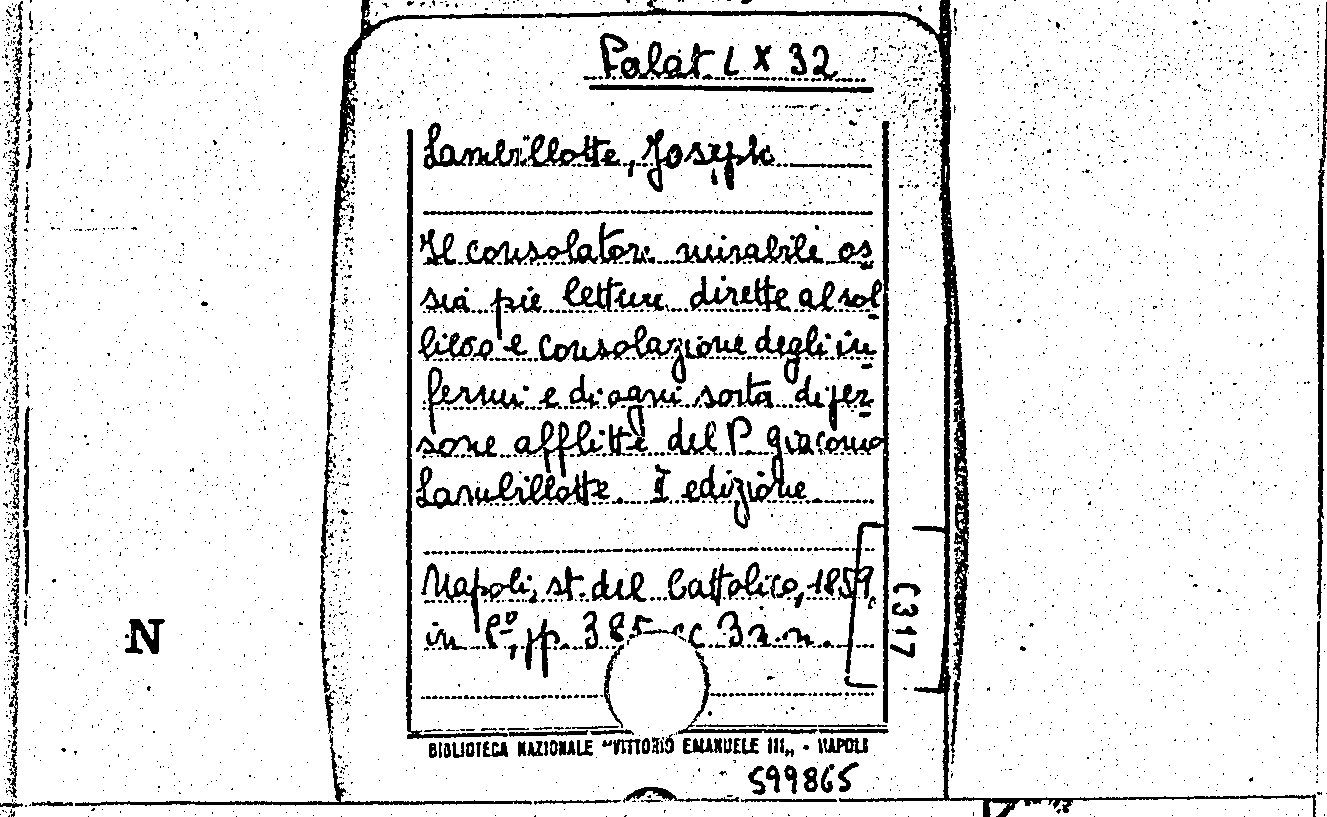 Palat. L X 32
Lambillotte, Joseph
Il consolatore mirabile os
sia pie letture dirette al sol
lievo e consolazione degli in
fermi e di ogni sorta di per
sone afflitte del P. Giacomo
Lambillotte. I edizione.
Napoli, st. del Cattolico, 1859,
in 8º, pp. 385 cc 3 n.n.
C317
N
BIBLIOTECA NAZIONALE "VITTORIO EMANUELE III„ - NAPOLI
599865